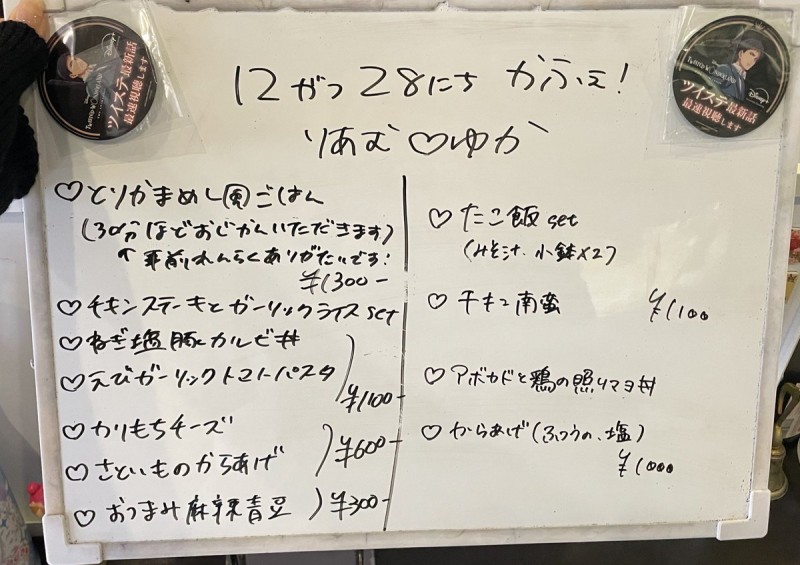 12がつ28にち かふぇ!
りあむ♡ゆか
♡とりかまめし風ごはん
(30分ほどおじかんいただきます)
↑事前れんらくありがたいです!
¥1300-
♡チキンステーキとガーリックライスset
♡ねぎ塩豚カルビ丼
♡えびガーリックトマトパスタ
¥1100-
♡かりもちチーズ
♡さといものからあげ
¥600-
♡おつまみ麻辣青豆 ¥300-
♡たこ飯 set
(みそ汁、小鉢×2)
♡チキン南蛮 ¥1100
♡アボカドと鶏の照りマヨ丼
♡からあげ(ふつうの、塩)
¥1000
TWISTED WONDERLAND
Disney+
ツイステ最新話
最速視聴します
TWISTED WONDERLAND
Disney+
ツイステ最新話
最速視聴します